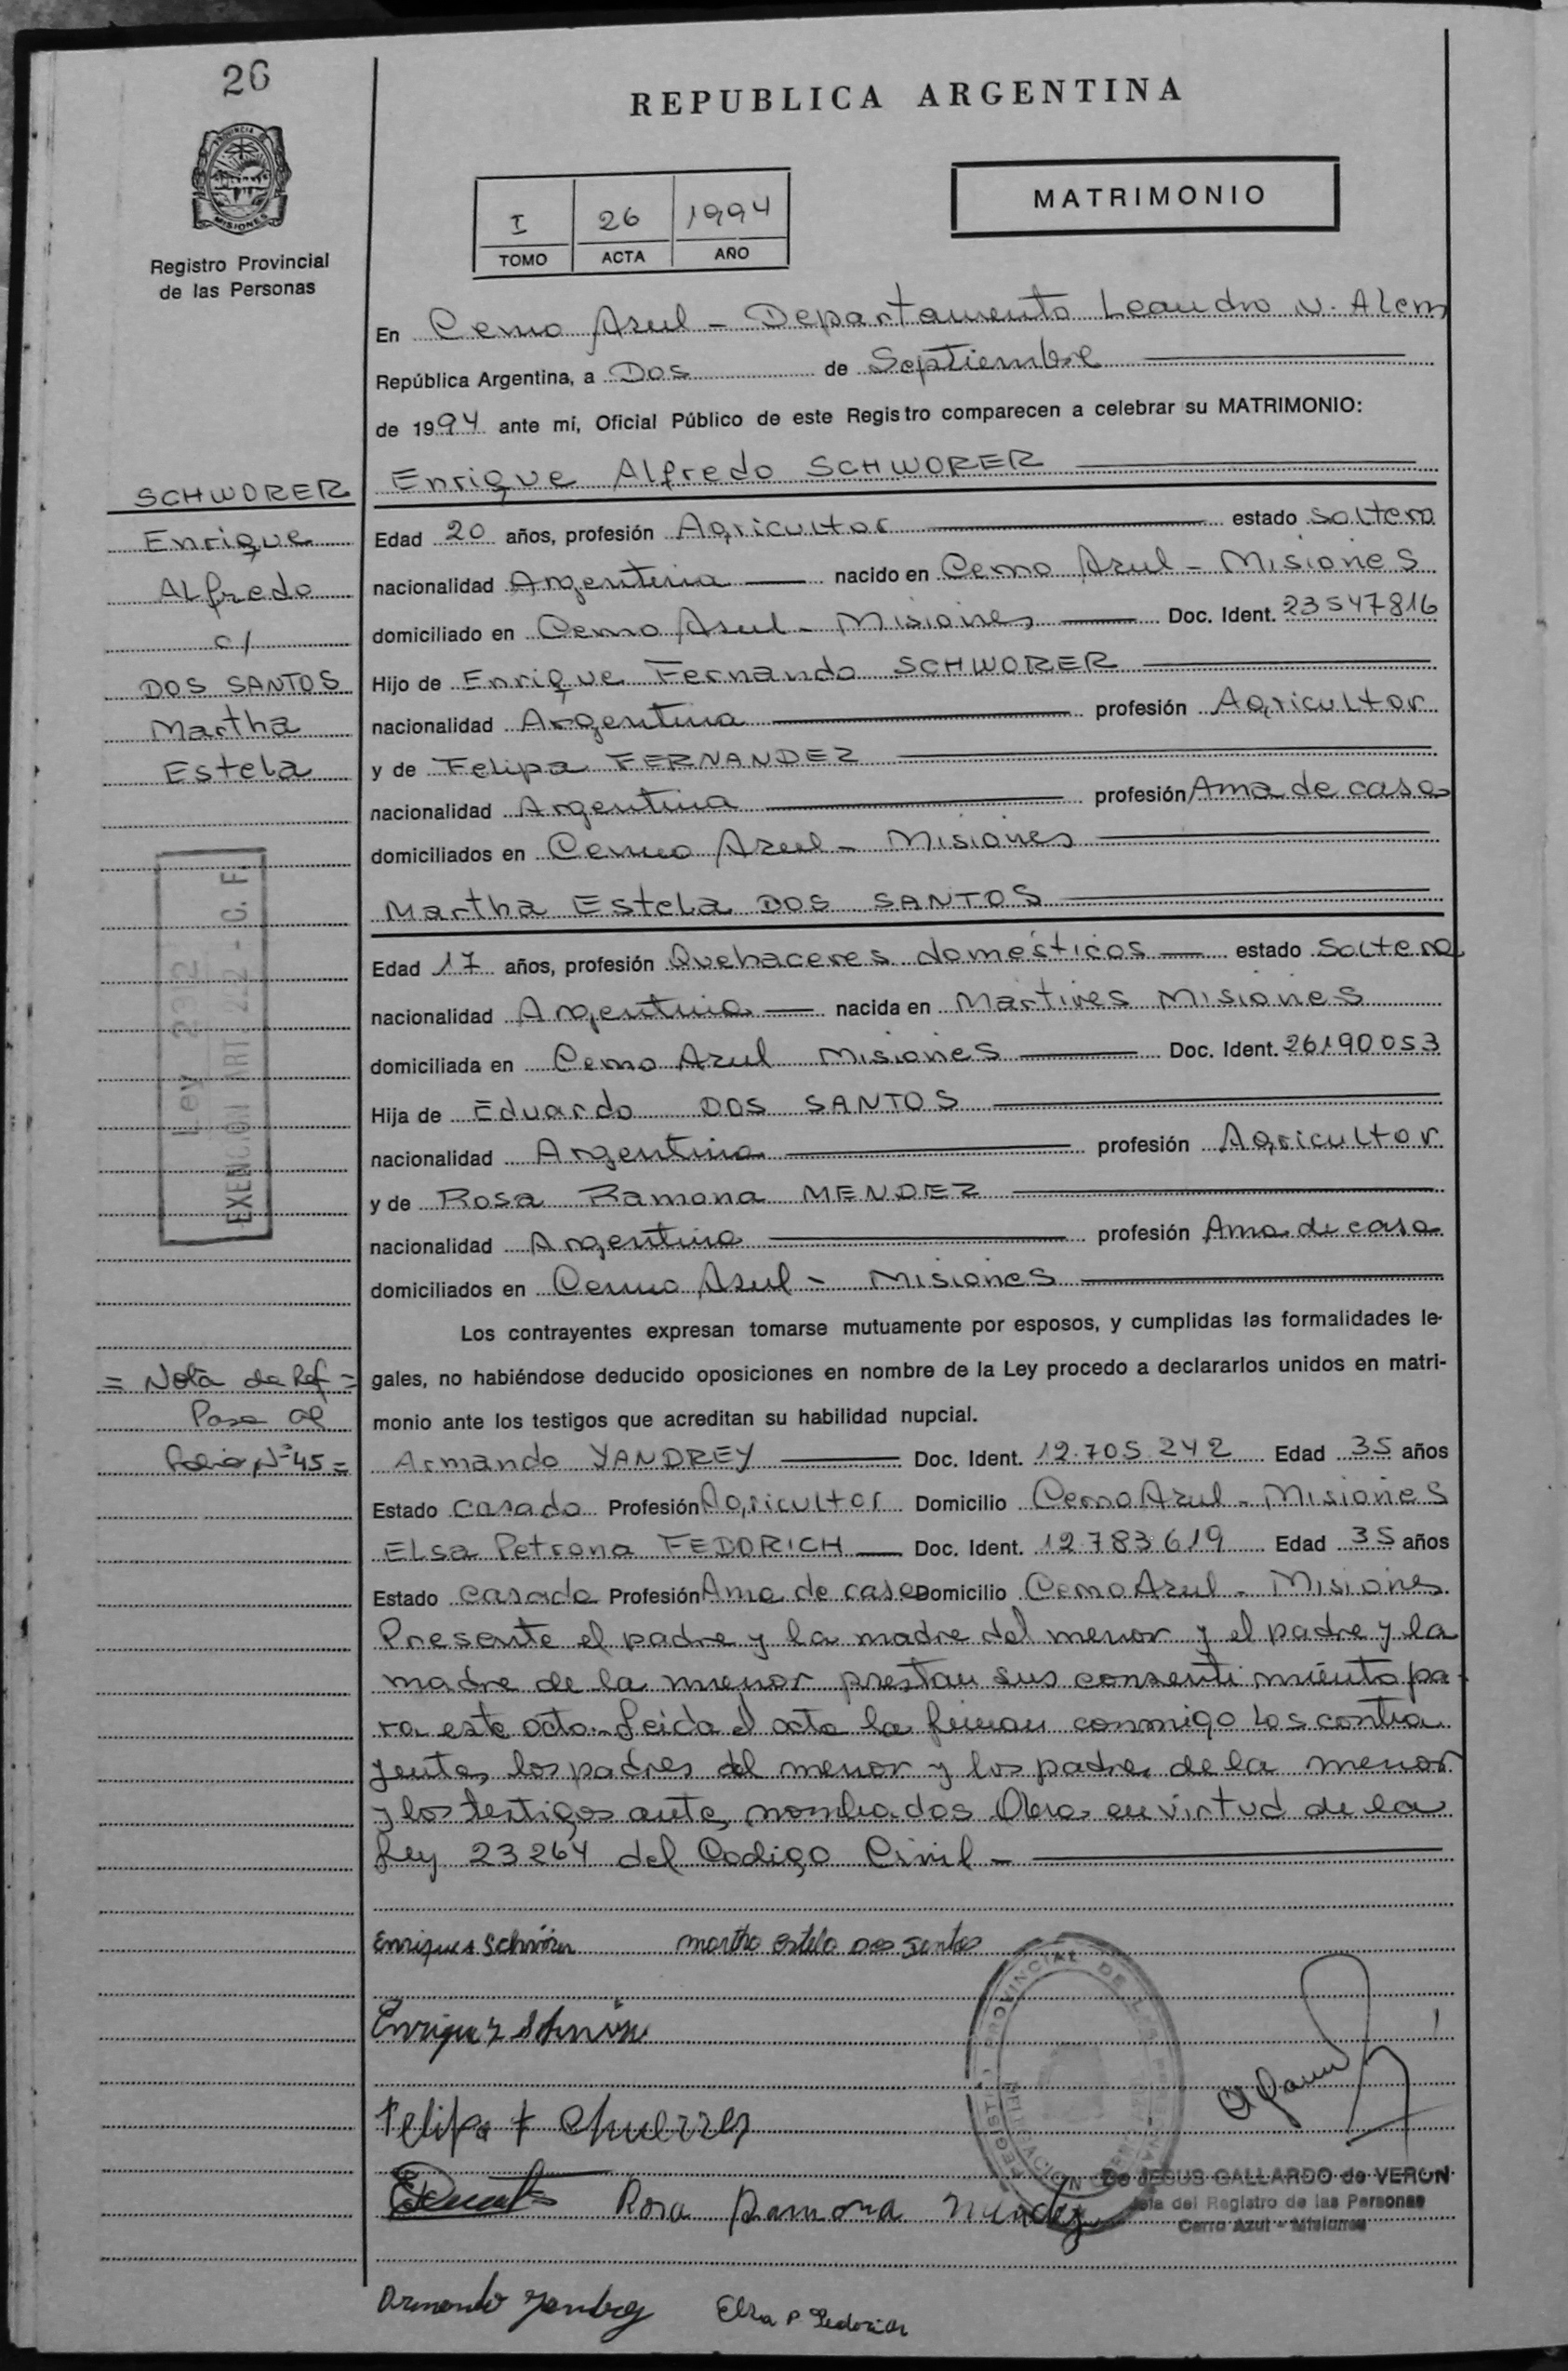 26
REPUBLICA ARGENTINA
PROVINCIA DE
MISIONES
Registro Provincial
de las Personas
I 26 1994
TOMO ACTA AÑO
MATRIMONIO
En Cerro Azul - Departamento Leandro N. Alem
República Argentina, a Dos de Septiembre
de 1994 ante mí, Oficial Público de este Registro comparecen a celebrar su MATRIMONIO:
Enrique Alfredo SCHWORER
SCHWORER
Enrique
Alfredo
c/
DOS SANTOS
Martha
Estela
Edad 20 años, profesión Agricultor estado Soltero
nacionalidad Argentina nacido en Cerro Azul - Misiones
domiciliado en Cerro Azul - Misiones Doc. Ident. 23547816
Hijo de Enrique Fernando SCHWORER
nacionalidad Argentina profesión Agricultor
y de Felipa FERNANDEZ
nacionalidad Argentina profesión Ama de casa
domiciliados en Cerro Azul - Misiones
Martha Estela DOS SANTOS
Edad 17 años, profesión Quehaceres domésticos estado Soltera
nacionalidad Argentina nacida en Martires Misiones
domiciliada en Cerro Azul Misiones Doc. Ident. 26190053
Hija de Eduardo DOS SANTOS
nacionalidad Argentina profesión Agricultor
y de Rosa Ramona MENDEZ
nacionalidad Argentina profesión Ama de casa
domiciliados en Cerro Azul - Misiones
Ley
EXENCION ART. 222 - C. F.
Los contrayentes expresan tomarse mutuamente por esposos, y cumplidas las formalidades le-
gales, no habiéndose deducido oposiciones en nombre de la Ley procedo a declararlos unidos en matri-
monio ante los testigos que acreditan su habilidad nupcial.
= Nota de Ref =
Pasa al
Folio Nº 45 =
Armando YANDREY Doc. Ident. 12.705.242 Edad 35 años
Estado Casado Profesión Agricultor Domicilio Cerro Azul - Misiones
Elsa Petrona FEDORICH Doc. Ident. 12.783.619 Edad 35 años
Estado Casada Profesión Ama de casa Domicilio Cerro Azul - Misiones
Presente el padre y la madre del menor y el padre y la
madre de la menor prestan sus consentimiento pa-
ra este acto.- Leida el acta la firman conmigo los contra
yentes los padres del menor y los padres de la menor
y los testigos antes nombrados Obra en virtud de la
Ley 23264 del Codigo Civil -
Enrique Schwörer martha estela dos santos
Enrique
Felipa
Rosa Ramona Mendez
De JESUS GALLARDO de VERON
Jefa del Registro de las Personas
Cerro Azul - Misiones
Armando Yandrey Elsa P Fedorich